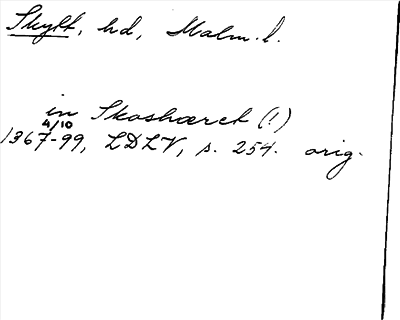 Skytt, hd, Malm. l.
in Skoshæret (!)
4/10
1367-99, LDLV, s. 254. orig.